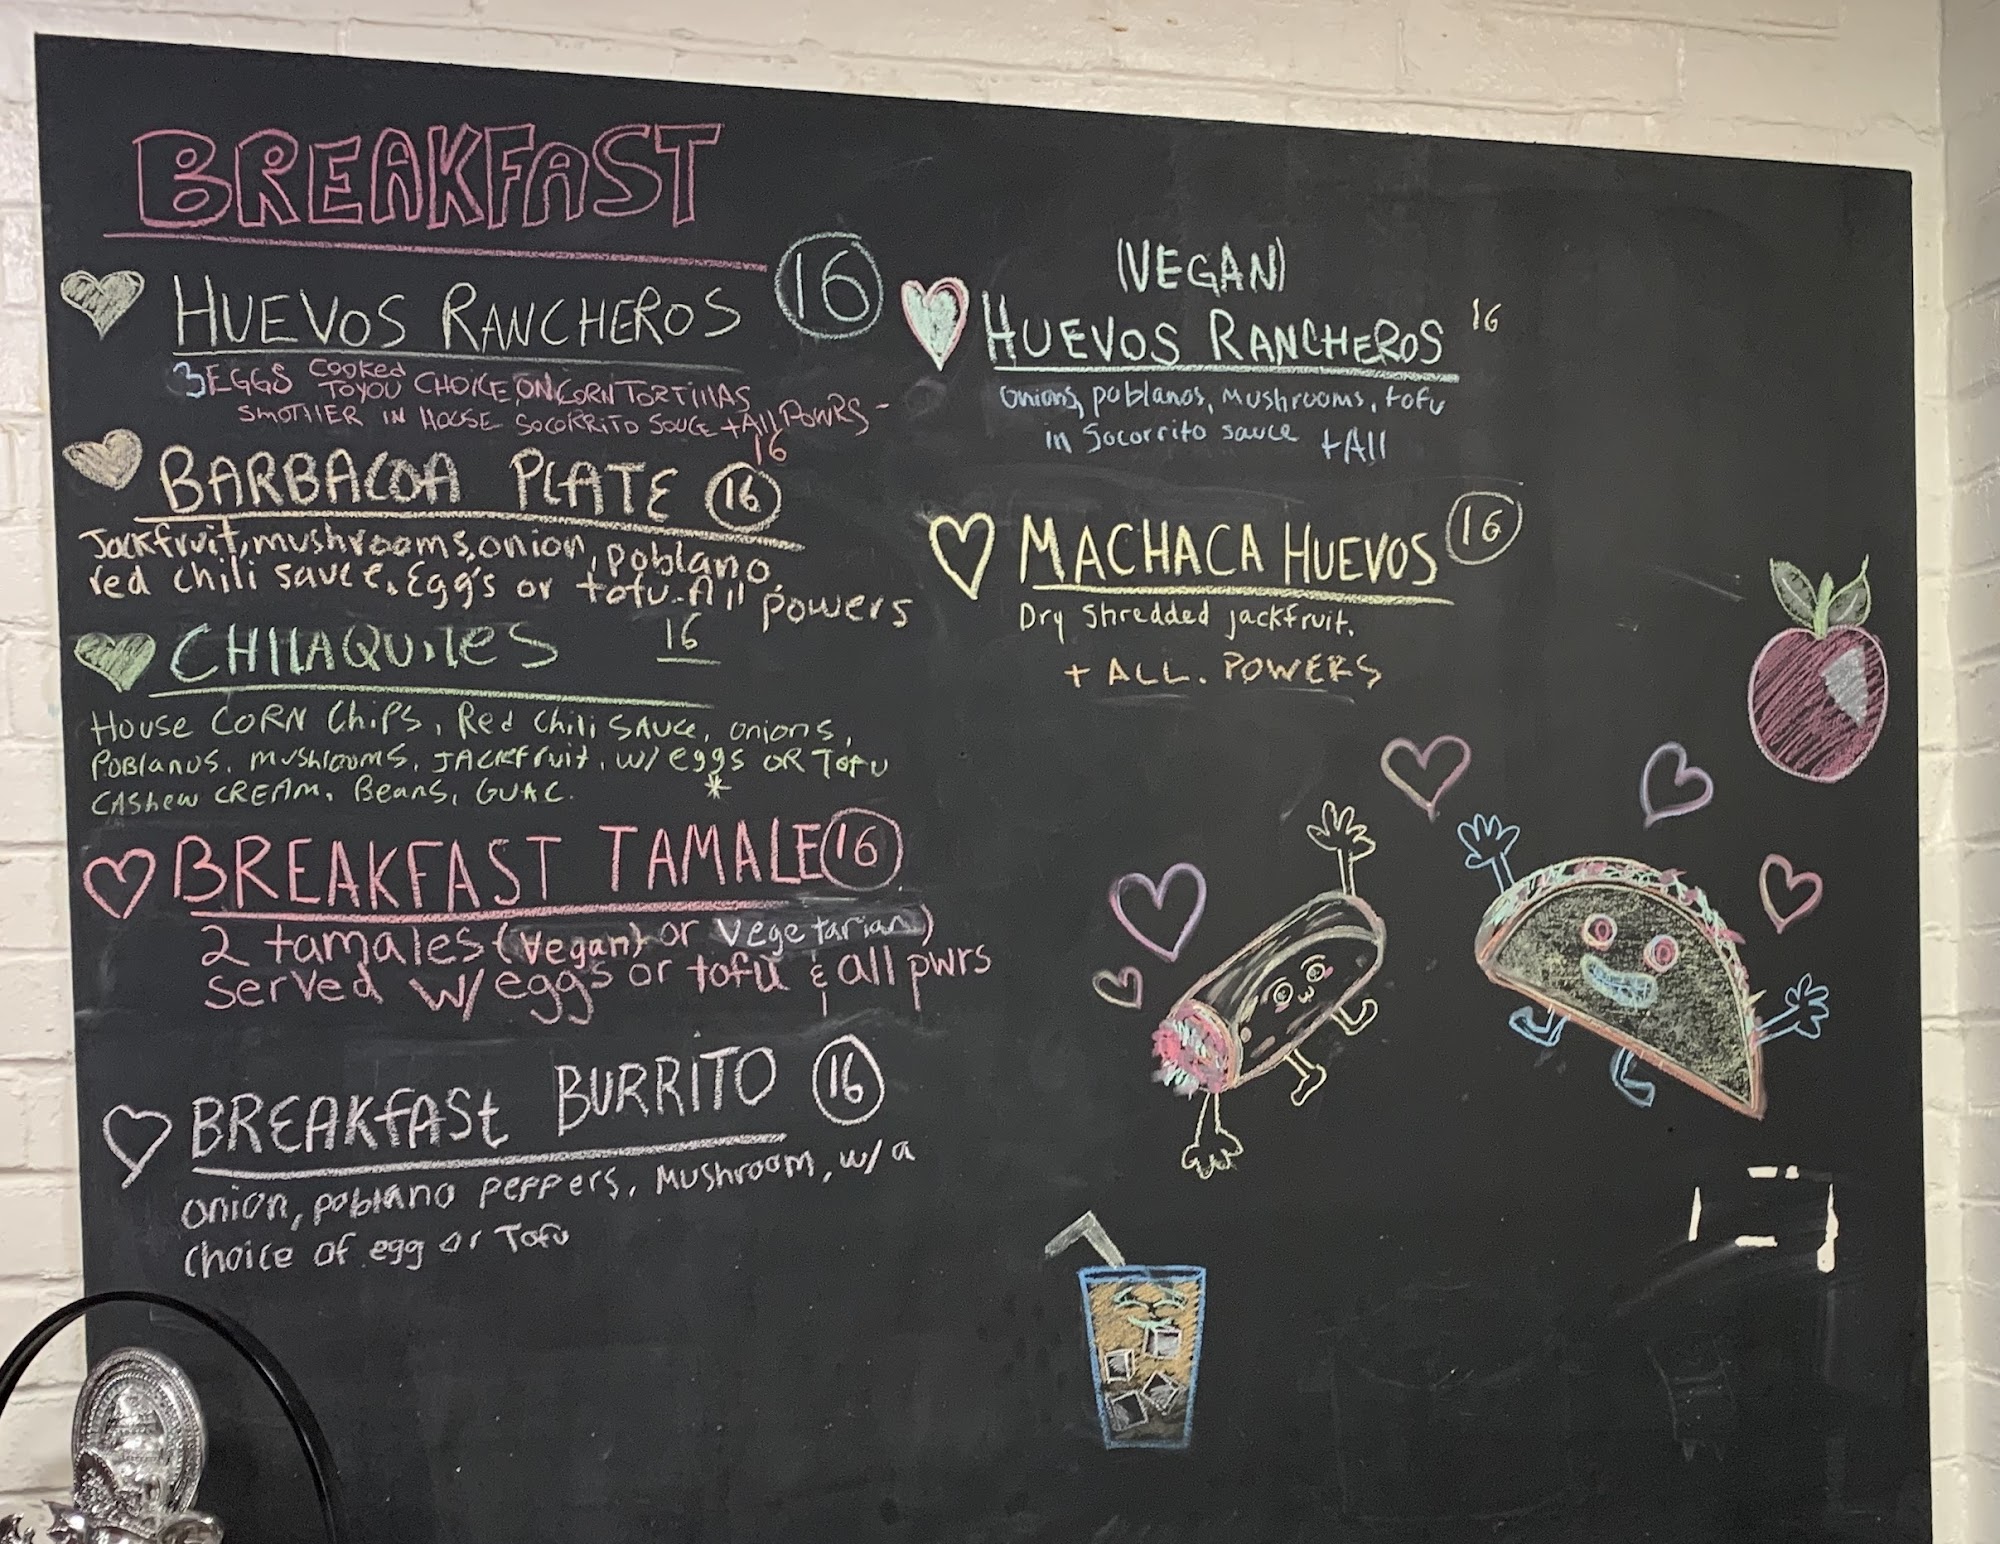 BREAKFAST
HUEVOS RANCHEROS 16
3 EGGS COOKED TO YOU CHOICE, ON CORN TORTILLAS
SMOTHER IN HOUSE SOCORRITO SOUCE + All POWRS -
16
BARBACOA PLATE 16
Jackfruit, mushrooms, onion, poblano,
red chili sauce. Egg's or tofu. All powers
CHILAQUILES 16
HOUSE CORN CHIPS, Red Chili SAUCE, onions,
POBLANOS, mushrooms, JACKFruit, w/ eggs OR TOFU
CASHEW CREAM, Beans, GUAC. *
BREAKFAST TAMALE 16
2 tamales (vegan) or vegetarian)
served w/ eggs or tofu & all pwrs
BREAKFASt BURRITO 16
onion, poblano peppers, Mushroom, w/ a
choice of egg or Tofu
(VEGAN)
HUEVOS RANCHEROS 16
onions, poblanos, mushrooms, tofu
in Socorrito sauce + All
MACHACA HUEVOS 16
Dry Shredded jackfruit.
+ ALL. POWERS